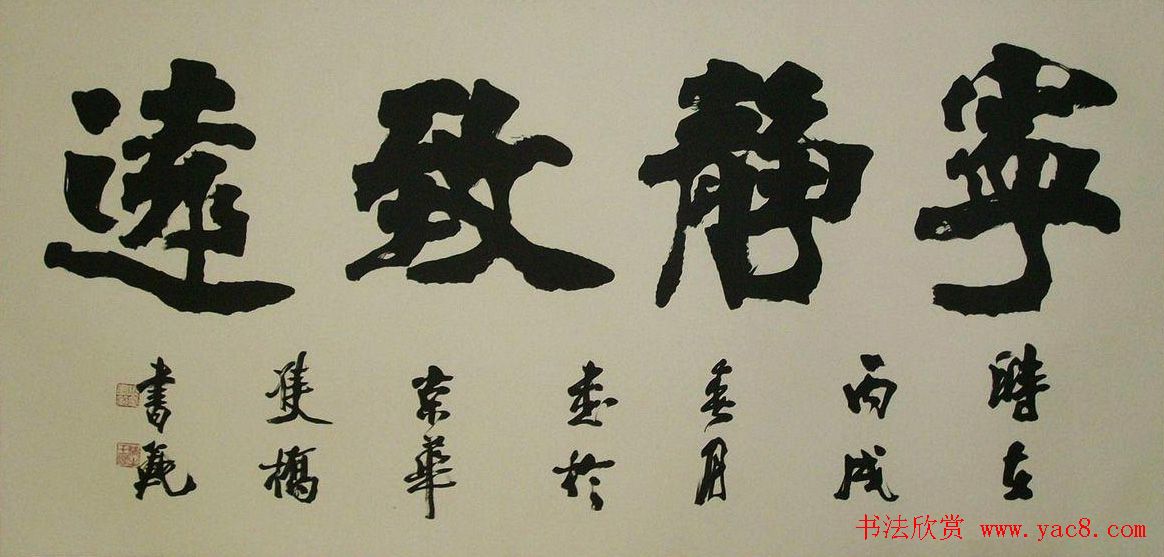 寧靜致遠
時在
丙戌
春月
書於
京華
雙橋
書範
书法欣赏 www.yac8.com